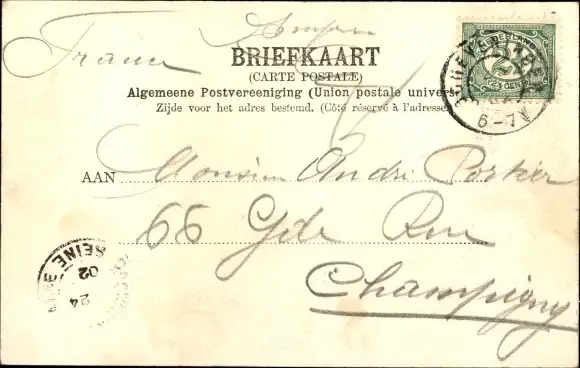 France
BRIEFKAART
(CARTE POSTALE)
Algemeene Postvereeniging (Union postale univer
Zijde voor het adres bestemd. (Côté réservé à l'adresse
NEDERLAND
2½
CENT
6-7V
AAN Monsieur André Portier
66 Gde Rue
Champigny
SEINE
02
24